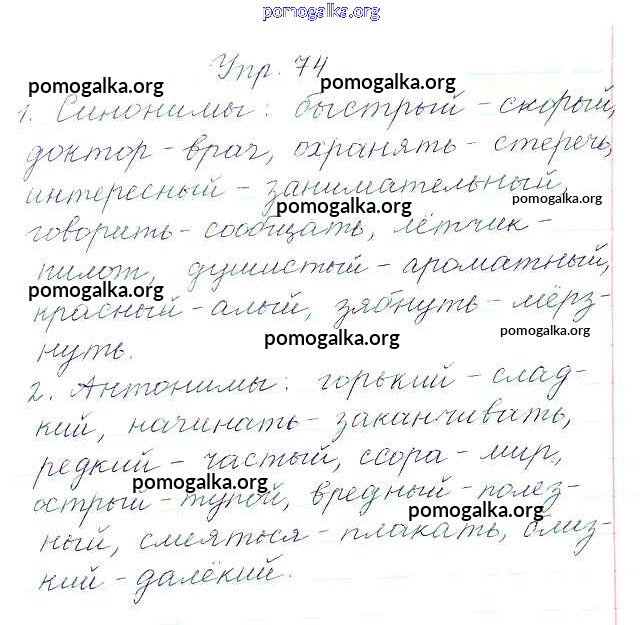 pomogalka.org
Упр. 74
pomogalka.org pomogalka.org
1. Синонимы: быстрый - скорый,
доктор - врач, охранять - стеречь,
интересный - занимательный,
pomogalka.org pomogalka.org
говорить - сообщать, лётчик -
пилот, душистый - ароматный,
pomogalka.org
красный - алый, зябнуть - мёрз-
pomogalka.org pomogalka.org
нуть.
2. Антонимы: горький - слад-
кий, начинать - заканчивать,
редкий - частый, ссора - мир,
pomogalka.org
острый - тупой, вредный - полез-
pomogalka.org
ный, смеяться - плакать, близ-
кий - далёкий.